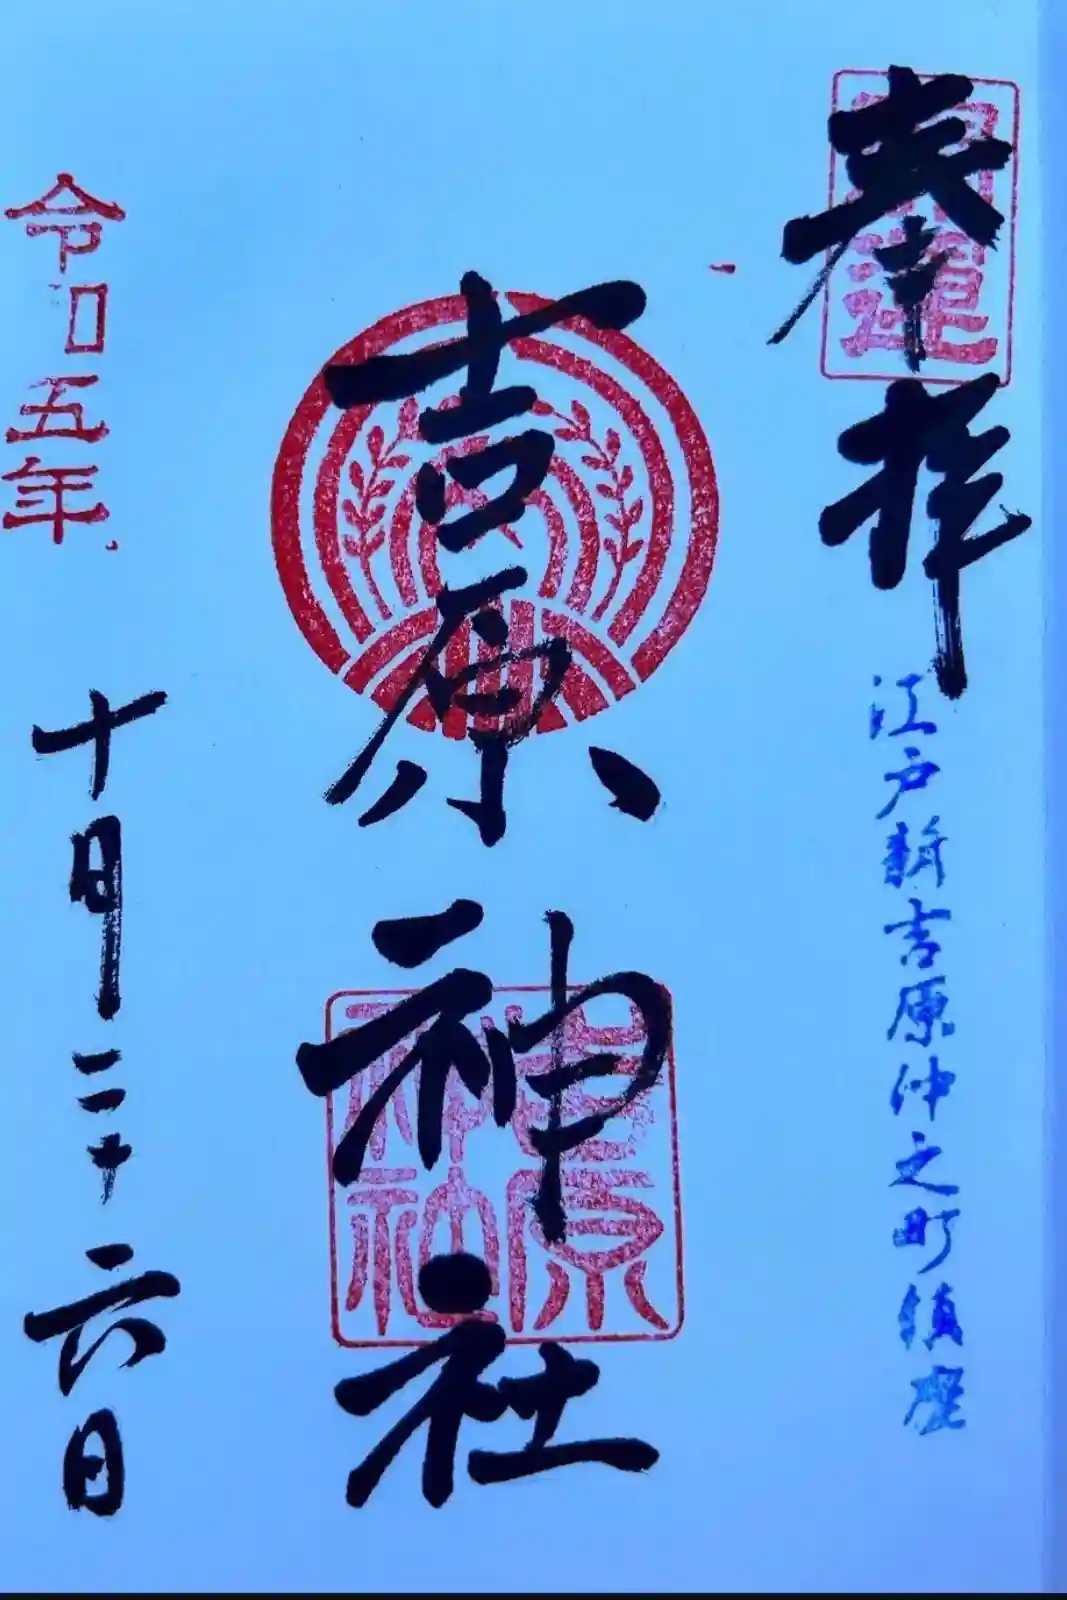 奉拝
開運
江戸新吉原仲之町鎮座
吉原神社
吉原
神社
令和五年
十月二十六日